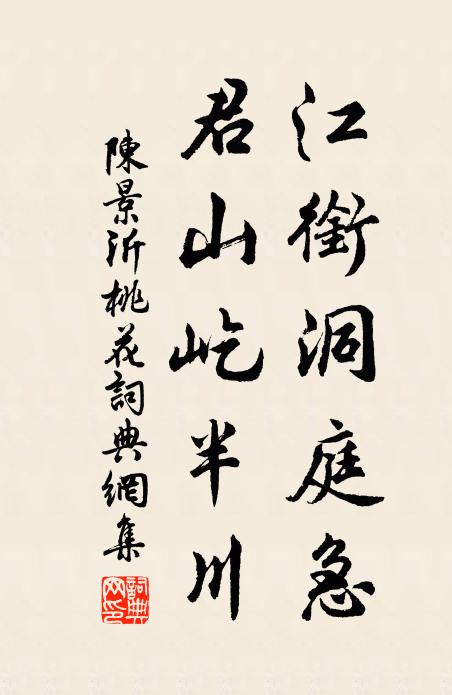 江銜洞庭急
君山屹半川
陳景沂桃花詞典網集
詞典
网印